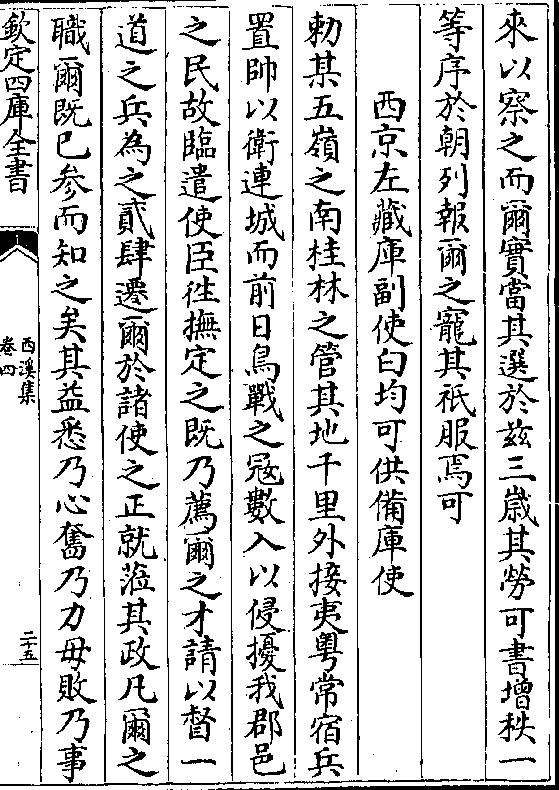 來以察之而爾實當其選於茲三歳其勞可書增秩一
等序於朝列報爾之寵其祇服焉可
西京左藏庫副使白均可供備庫使
勅某五嶺之南桂林之管其地千里外接夷粤常宿兵
置帥以衛連城而前日鳥戰之冦數入以侵擾我郡邑
之民故臨遣使臣徃撫定之既乃薦爾之才請以督一
道之兵為之貳肆遷爾於諸使之正就蒞其政凡爾之
職爾既已參而知之矣其益悉乃心奮乃力毋敗乃事
欽定四庫全書
西溪集
卷四
二十五